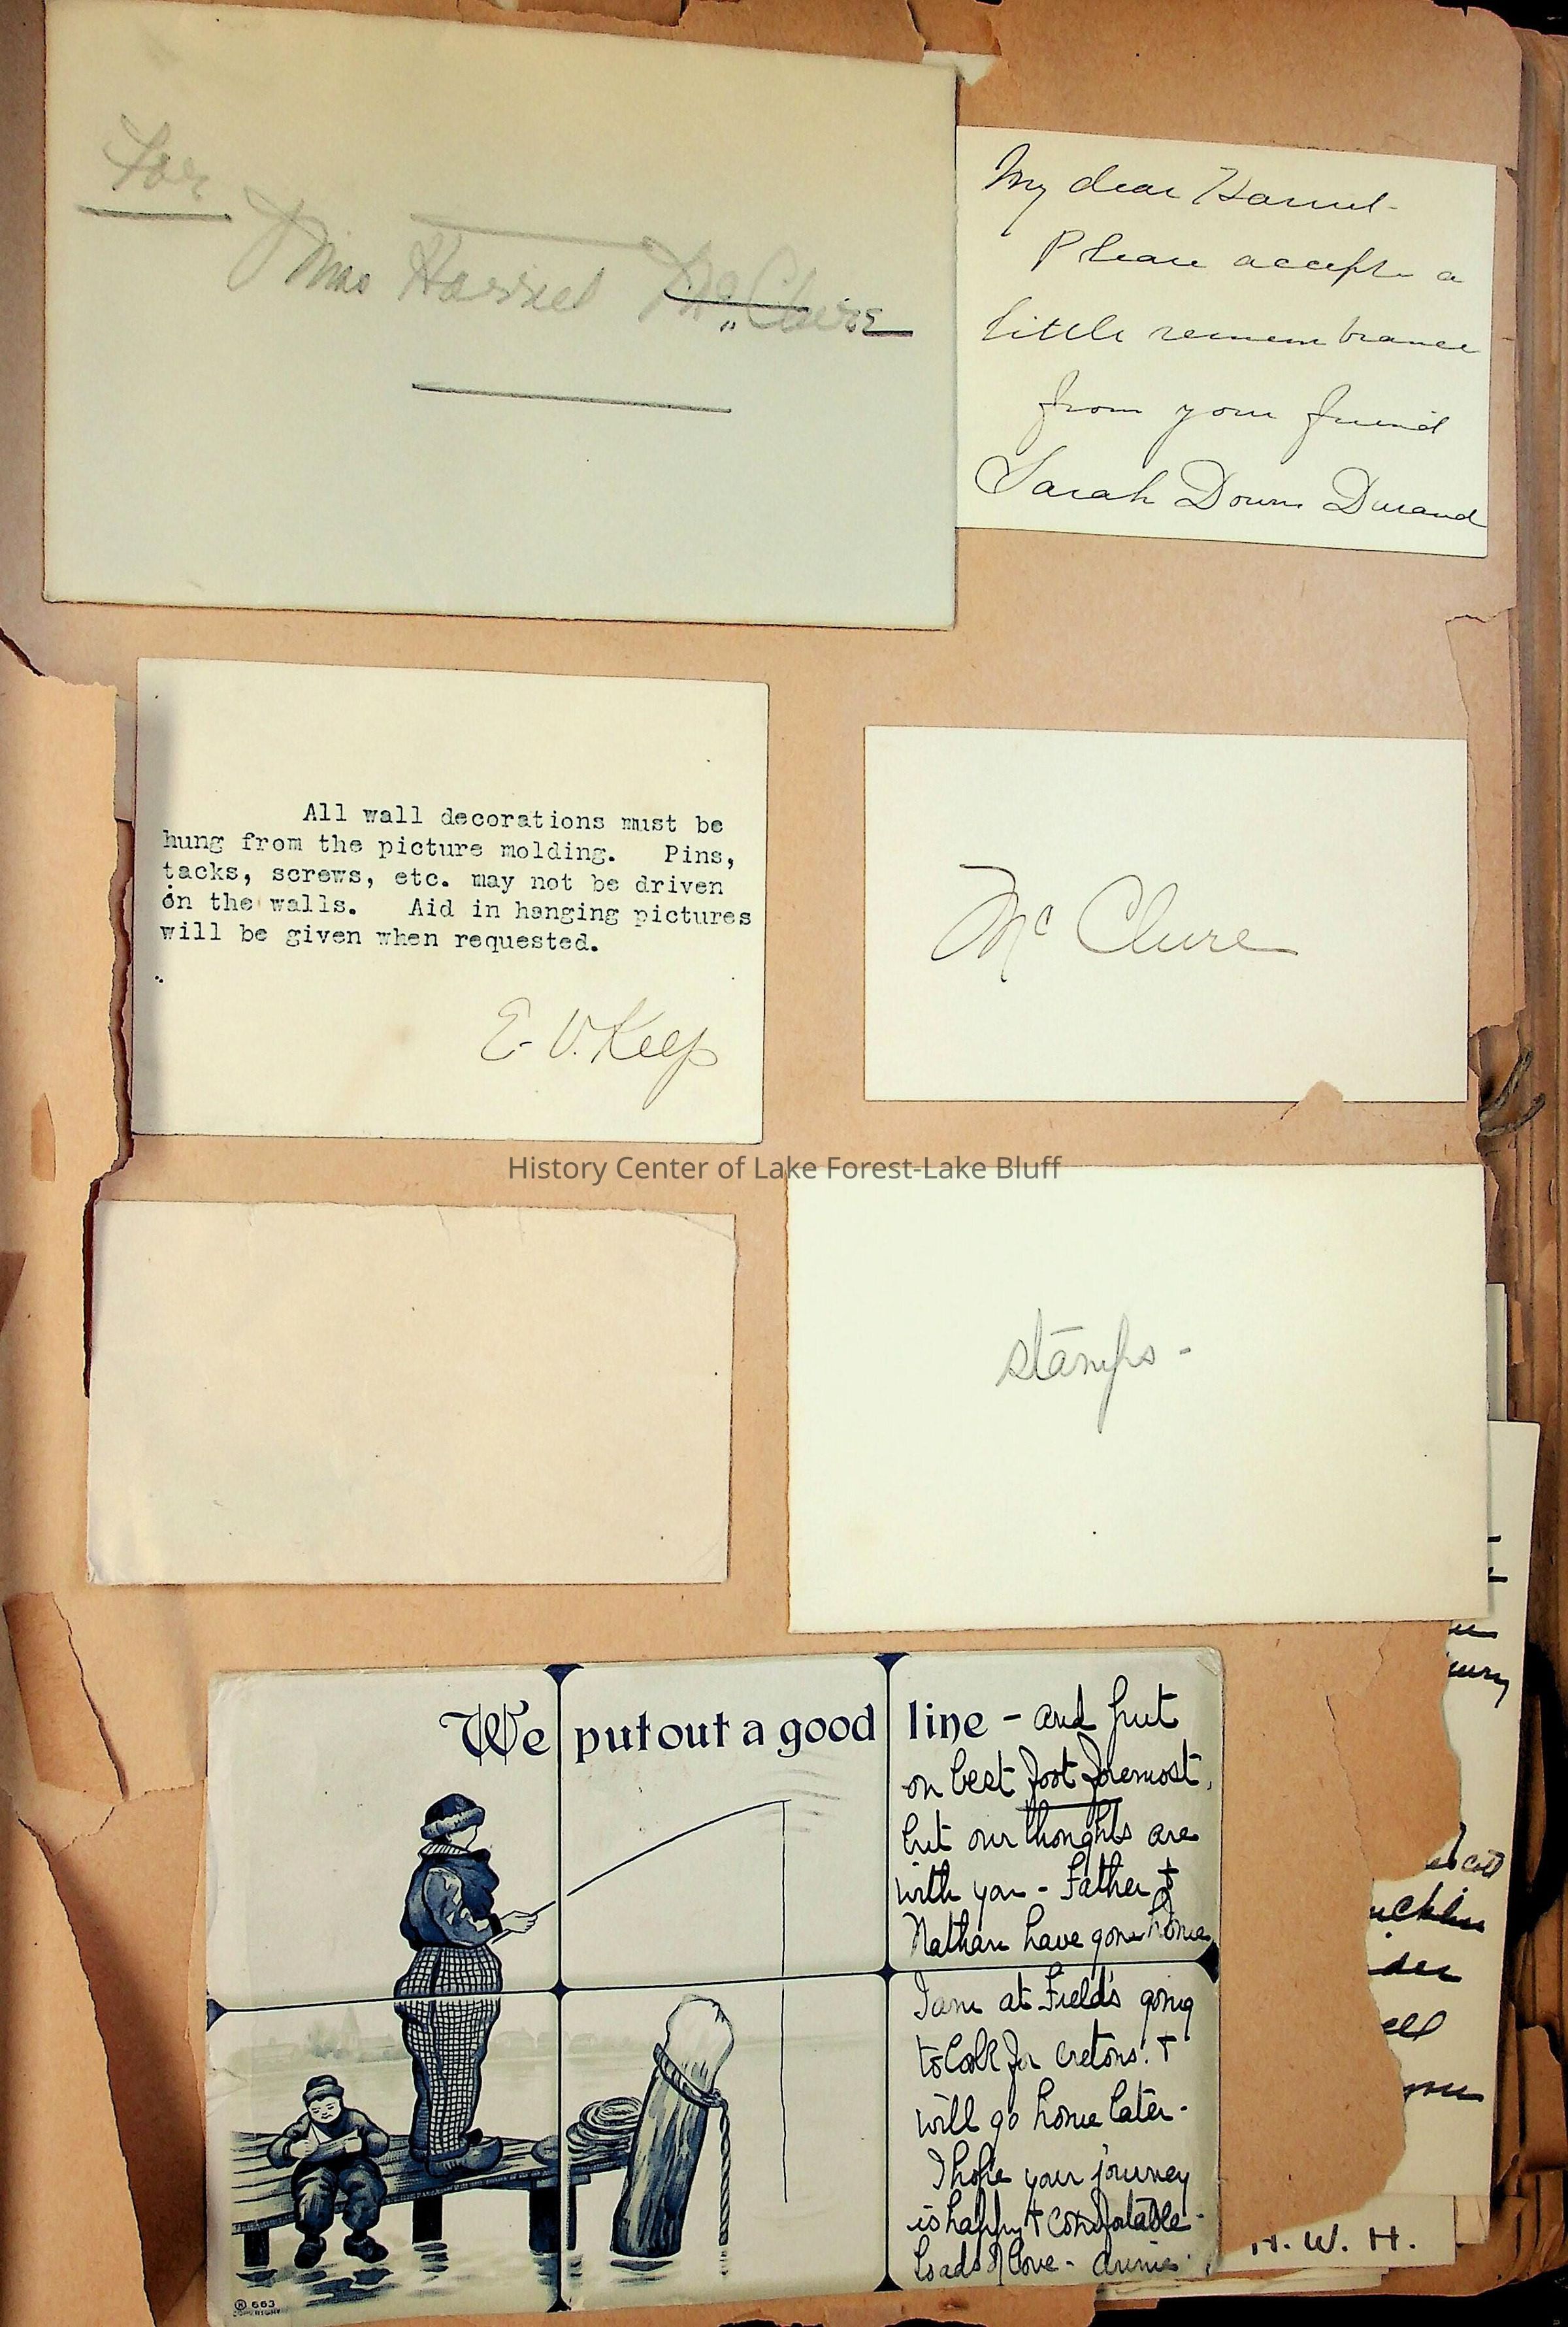 For
Miss Harriet McClure
My dear Harriet-
Please accept a
little remembrance
from your friend
Sarah Downs Durand
All wall decorations must be
hung from the picture molding. Pins,
tacks, screws, etc. may not be driven
in the walls. Aid in hanging pictures
will be given when requested.
E. V. Keep
McClure
History Center of Lake Forest-Lake Bluff
stamps -
We put out a good line - and put
on best foot foremost,
but our thoughts are
with you - Father &
Nathan have gone home
I am at Field's going
to look for cretons. &
will go home later -
I hope your journey
is happy & comfortable -
loads of love - Annie
® 663
COPYRIGHT
H. W. H.